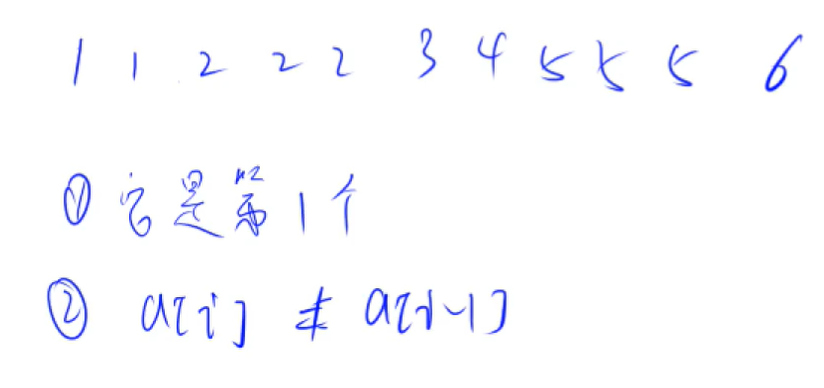 1 1 2 2 2 3 4 5 5 5 5 6
① 它是第1个
② a[i] ≠ a[i-1]